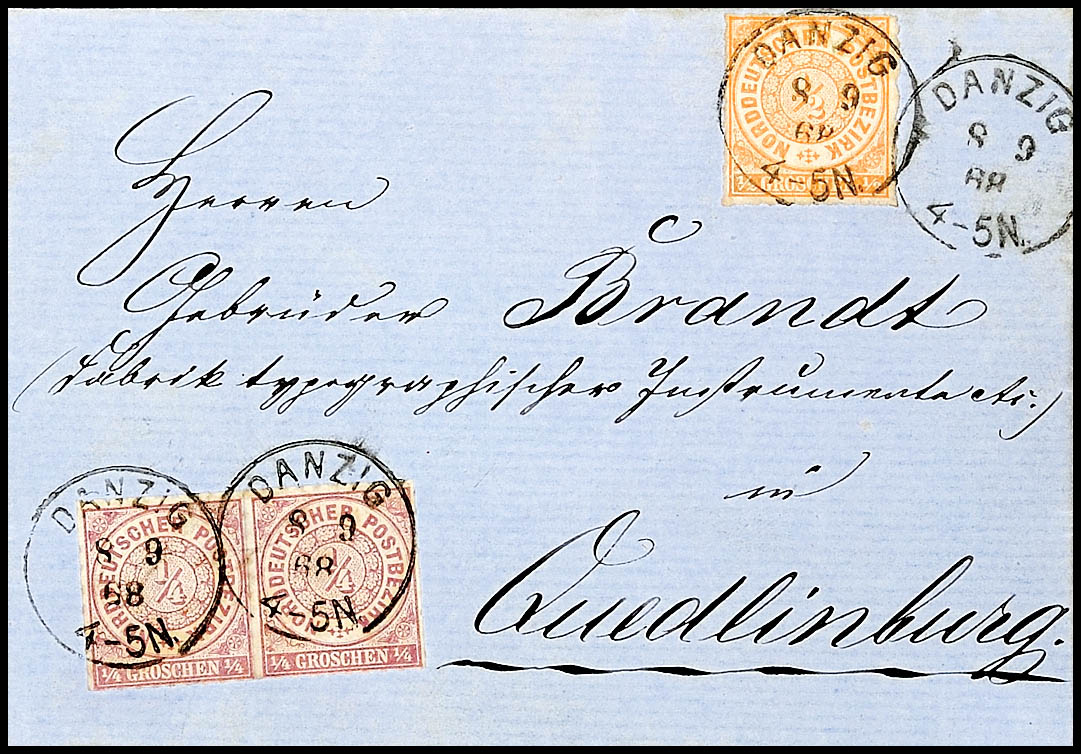 NORDDEUTSCHER POSTBEZIRK
1/2
1/2 GROSCHEN 1/2
DANZIG
8 9
68
4-5N.
DANZIG
8 9
68
4-5N.
Herren
Gebrüder Brandt
(Fabrik typographischer Instrumente etc.)
in
Quedlinburg.
DANZIG
8 9
68
4-5N.
NORDDEUTSCHER POSTBEZIRK
1/4
1/4 GROSCHEN 1/4
DANZIG
8 9
68
4-5N.
NORDDEUTSCHER POSTBEZIRK
1/4
1/4 GROSCHEN 1/4